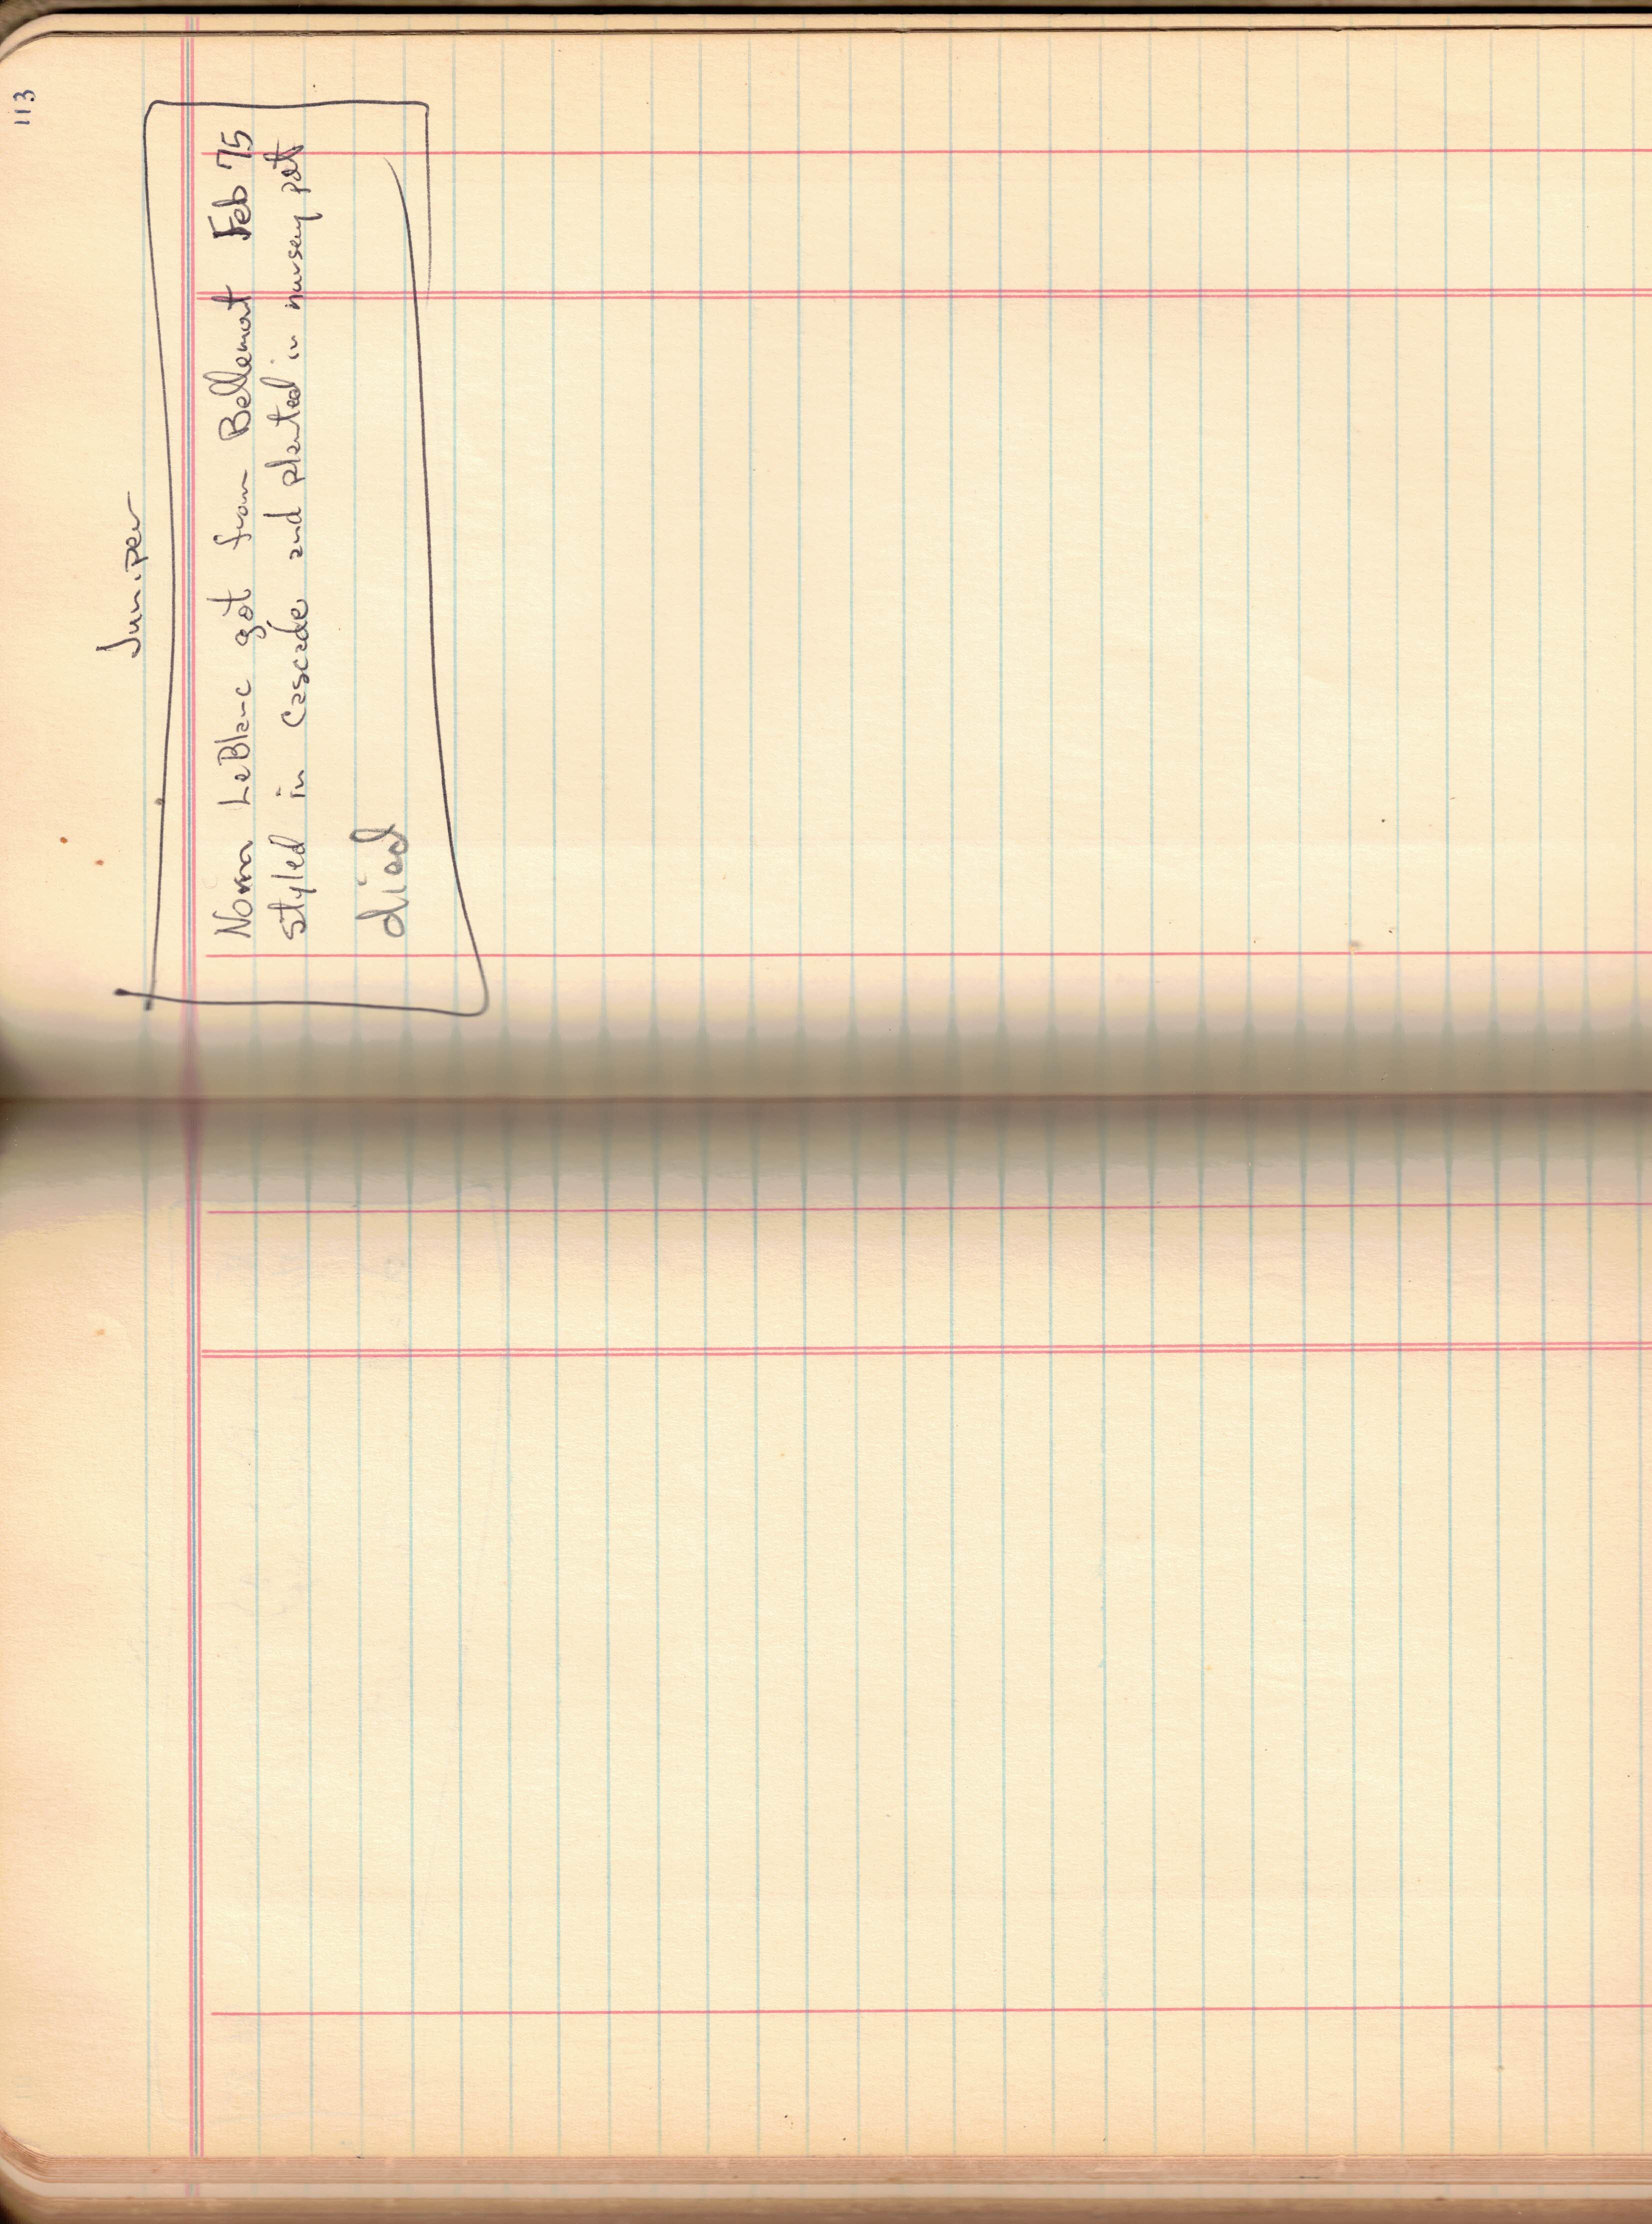 113
Juniper
Norm LeBlanc got from Bellemont Feb 75
styled in Cascade and planted in nursery pot
died